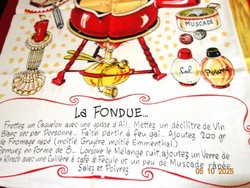 MUSCADE
Sel
Poivre
La FONDUE...
Frottez un Caquelon avec une gousse d'Ail. Mettez un décilitre de Vin
Blanc sec par Personne... Faites partir à feu gai. Ajoutez 200 gr
de Fromage rapé (moitié Gruyère moitié Emmenthal.)
Remuez en forme de 8... Lorsque le Mélange cuit, ajoutez un Verre de
Kirsch avec une Cuillère à café de Fécule et un peu de Muscade rapée
Salez et Poivrez
06 10 2025